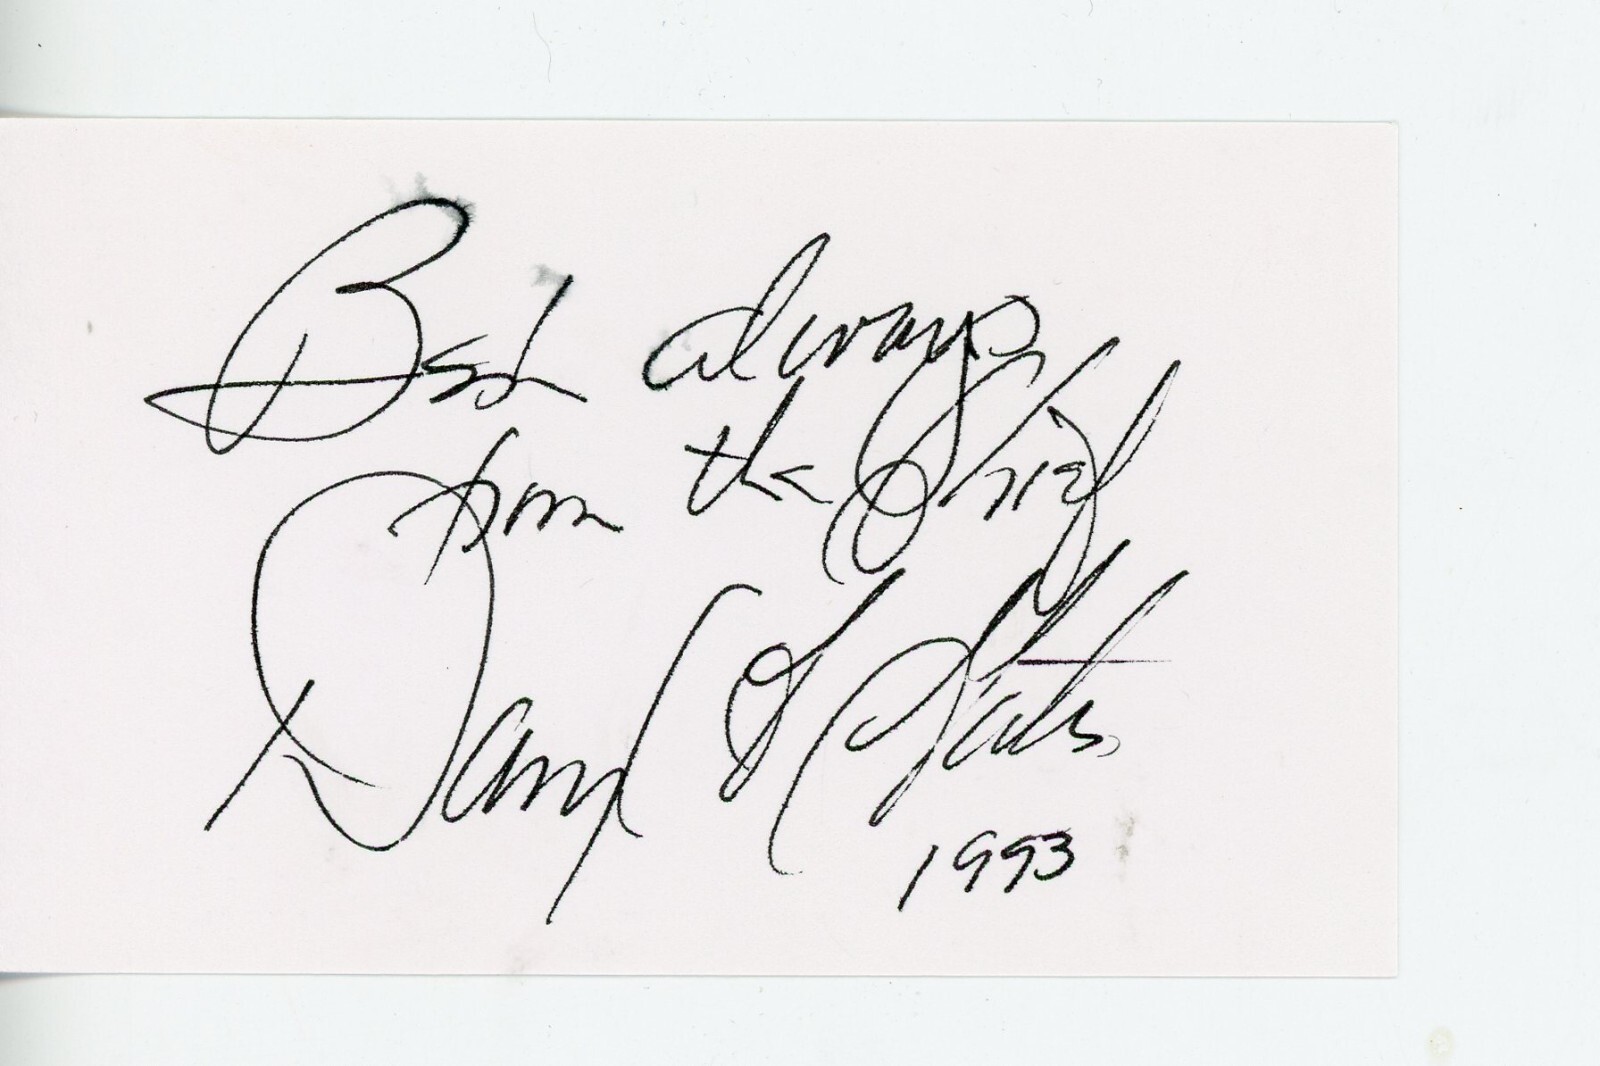 Best always
from the Chief
Daryl F. Gates
1993